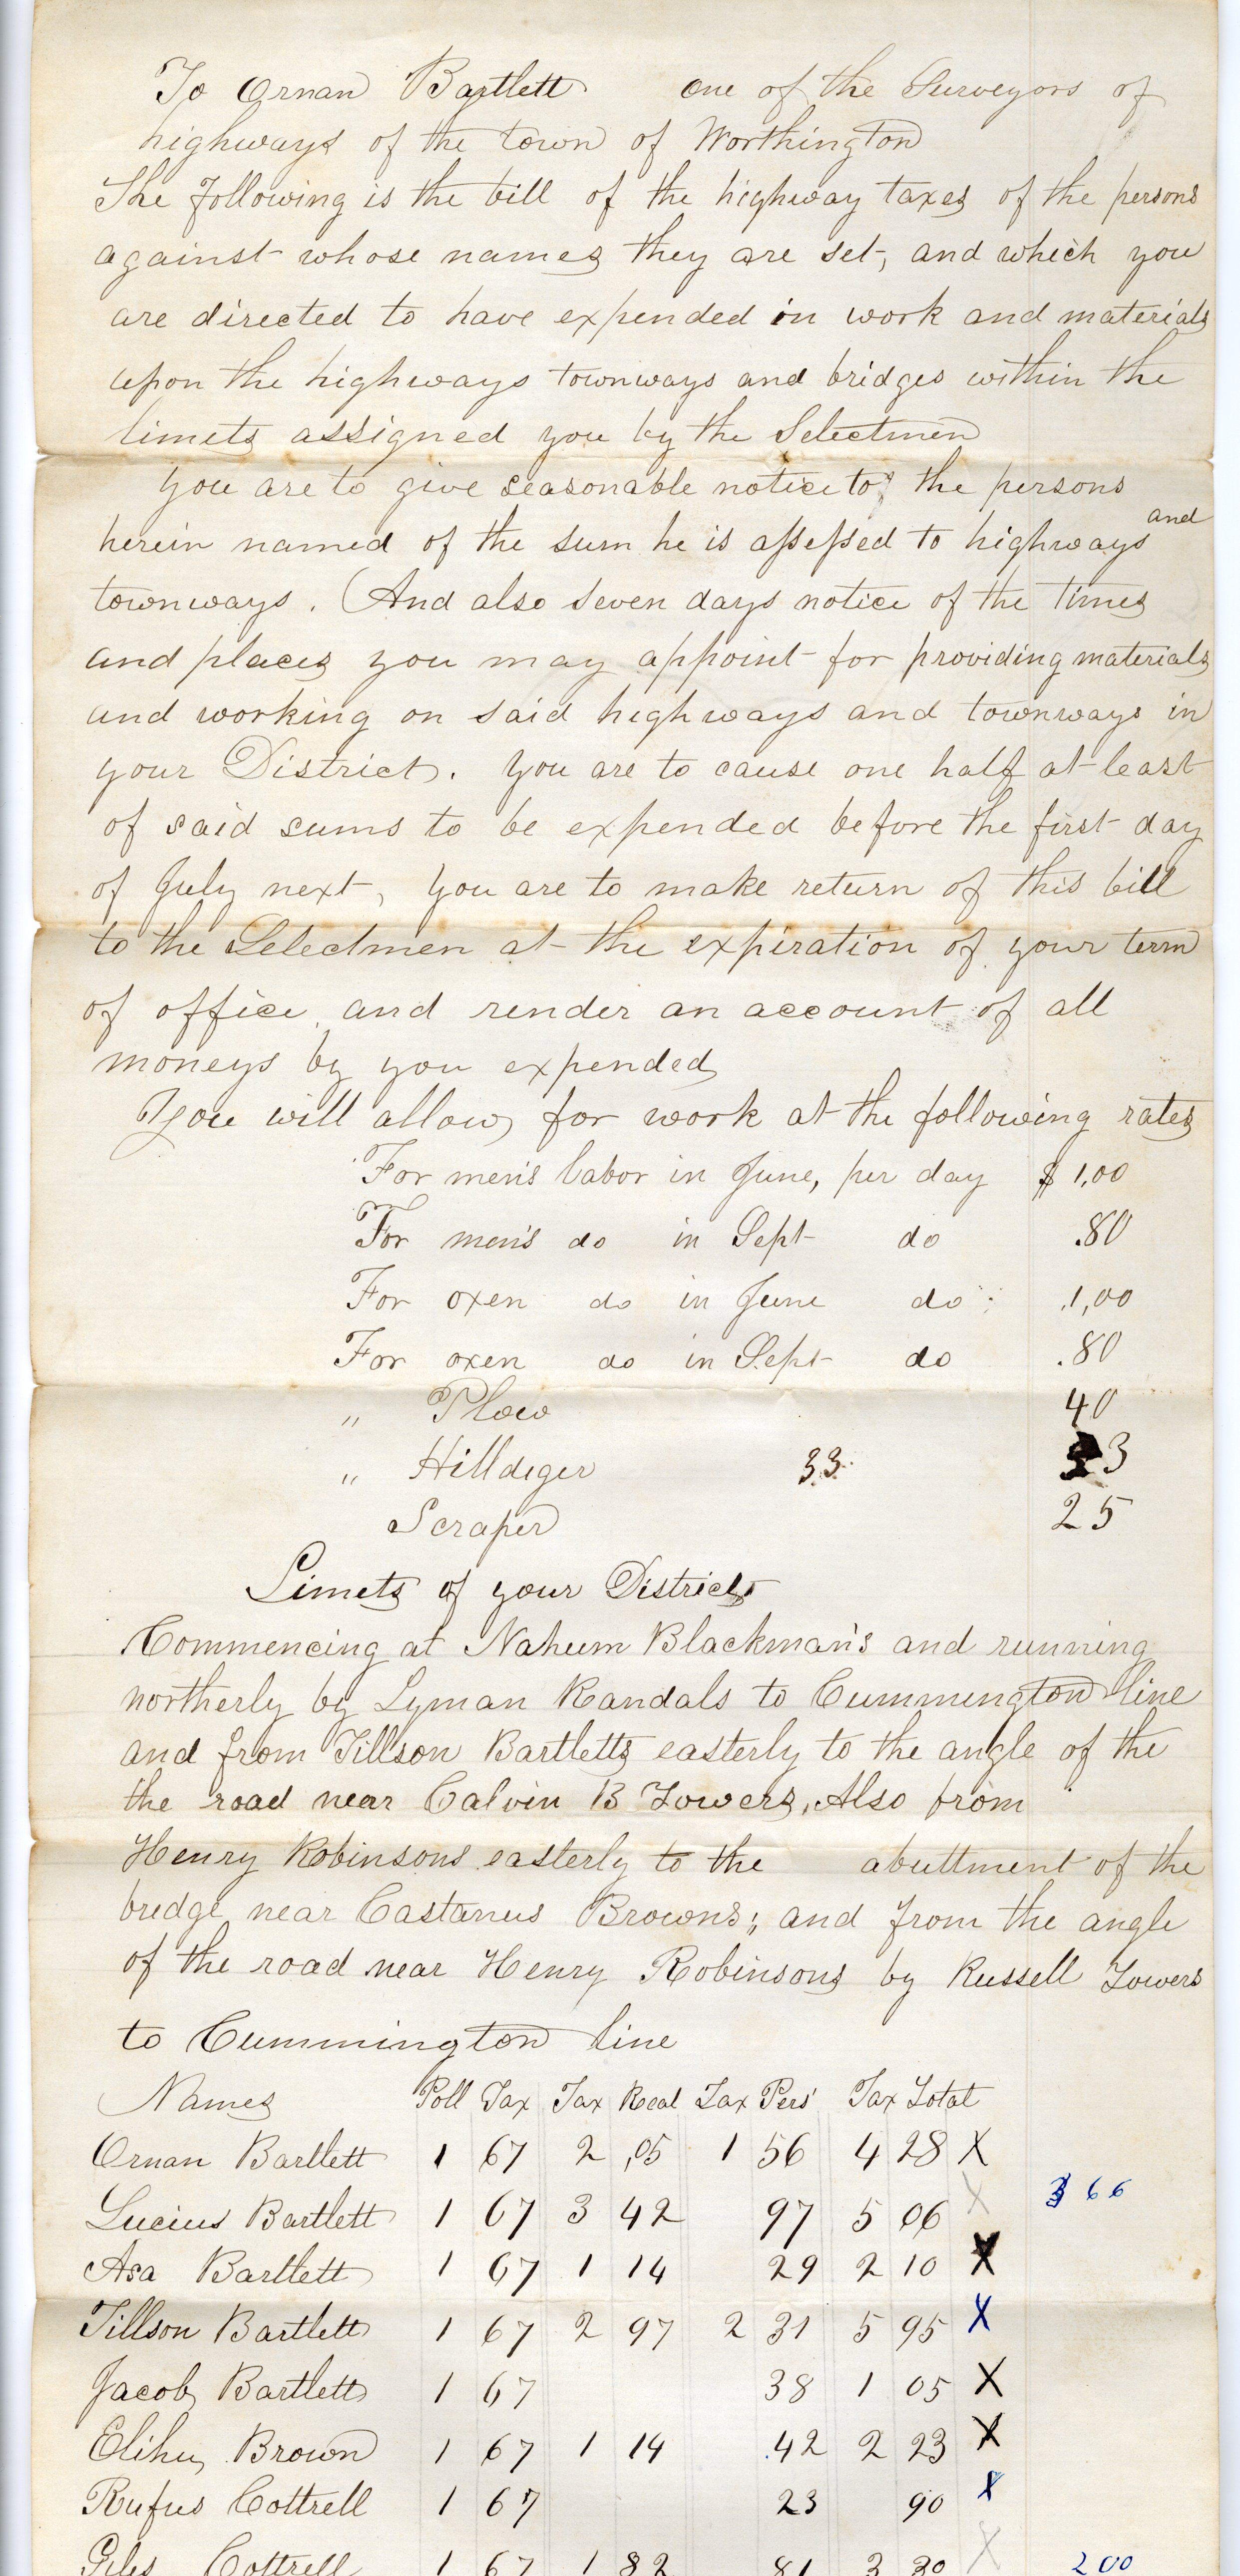 To Ornan Bartlett one of the Surveyors of
highways of the town of Worthington
The following is the bill of the highway taxes of the persons
against whose names they are set, and which you
are directed to have expended in work and materials
upon the highways townways and bridges within the
limets assigned you by the Selectmen
you are to give seasonable notice to the persons
herein named of the sum he is assessed to highways and
townways. (And also seven days notice of the times
and places you may appoint for providing materials
and working on said highways and townways in
your District. You are to cause one half at least
of said sums to be expended before the first day
of July next, You are to make return of this bill
to the Selectmen at the expiration of your term
of office, and render an account of all
moneys by you expended
You will allow for work at the following rates
For men's labor in June, per day $ 1,00
For men's do in Sept do .80
For oxen do in June do 1,00
For oxen do in Sept do .80
" Plow 40
" Hilldiger 33 33
Scraper 25
Limets of your District
Commencing at Nahum Blackman's and running
northerly by Lyman Randals to Cummington line
and from Tillson Bartletts easterly to the angle of the
the road near Calvin B Towers, Also from
Henry Robinsons easterly to the abuttment of the
bridge near Castanus Browns; and from the angle
of the road near Henry Robinsons by Russell Towers
to Cummington line
Names Poll Tax Tax Real Tax Pers' Tax Total
Ornan Bartlett 1 67 2 ,05 1 56 4 28 X
Lucius Bartlett 1 67 3 42 97 5 06 X 3 66
Asa Bartlett 1 67 1 14 29 2 10 X
Tillson Bartlett 1 67 2 97 2 31 5 95 X
Jacob Bartlett 1 67 38 1 05 X
Elihu Brown 1 67 1 14 .42 2 23 X
Rufus Cottrell 1 67 23 90 X
Giles Cottrell 1 67 1 82 81 3 30 X 2 00